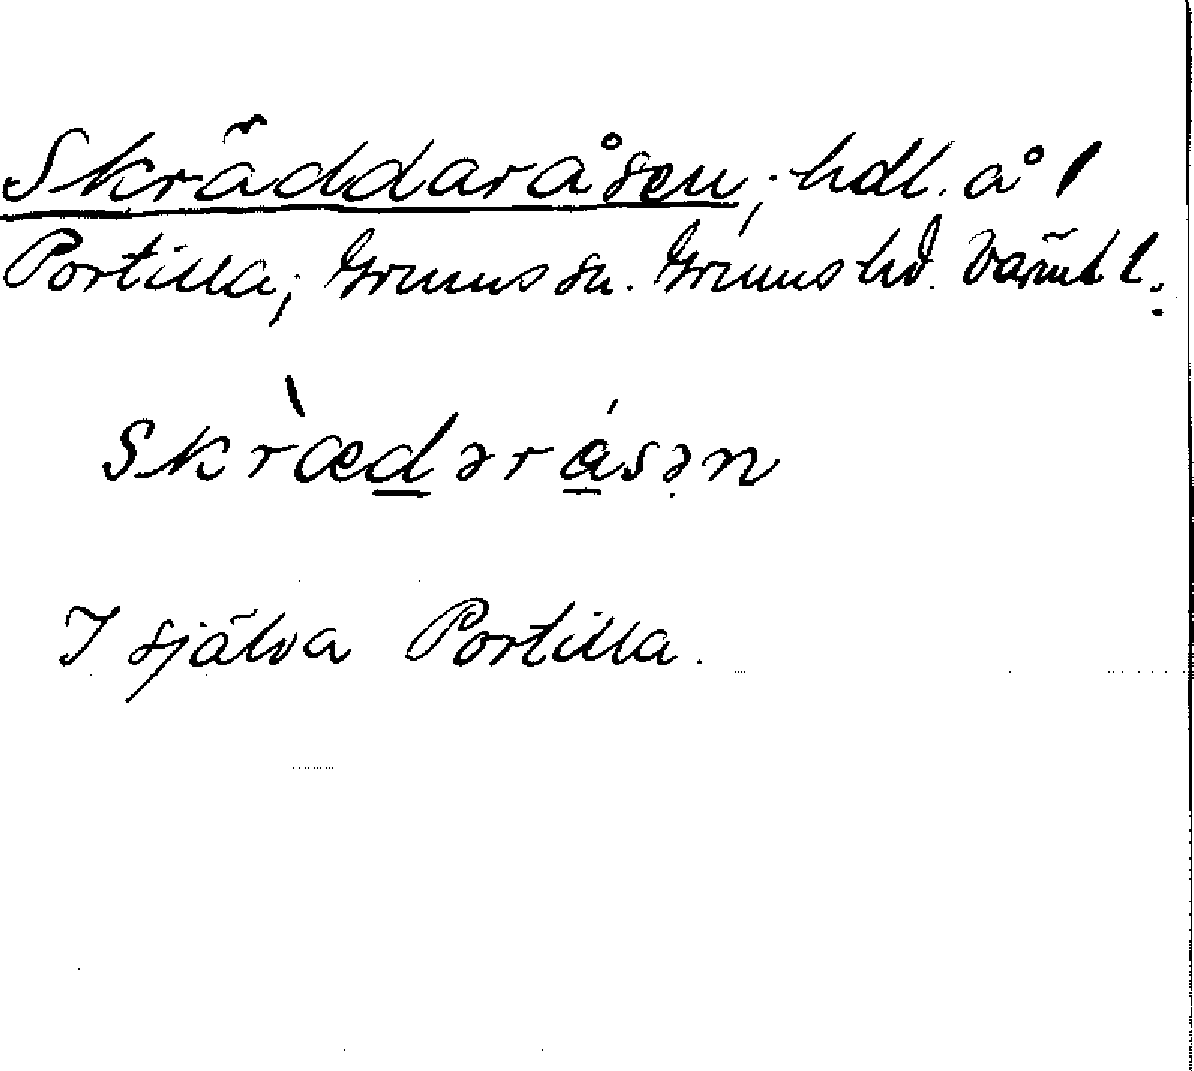 Skräddaråsen, hdl. å 1
Portilla; Grums sn. Grums hd. Värml.
Skrædəråsən
I själva Portilla.